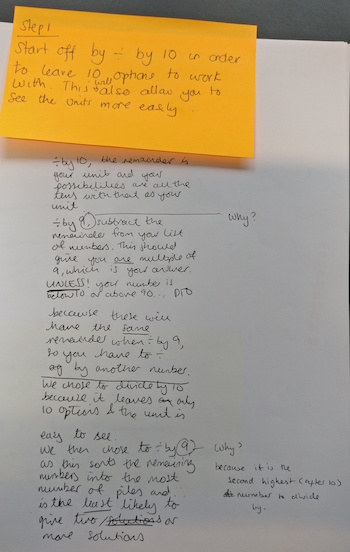 Step 1
Start off by ÷ by 10 in order
to leave 10 options to work
with. This will also allow you to
see the units more easily.
÷ by 10, the remainder is
your unit and your
possibilities are all the
tens with that as your
unit
÷ by 9, subtract the Why?
remainder from your list
of numbers. This should
give you one multiple of
9, which is your answer.
UNLESS! your number is
below 10 or above 90... PTO
because these will
have the same
remainder when ÷ by 9,
so you have to ÷
by another number.
We chose to divide by 10
because it leaves only
10 options & the unit is
easy to see.
We then chose to ÷ by 9 Why?
as this sorts the remaining
numbers into the most
number of piles and
is the least likely to
give two solutions or
more solutions
because it is the
second highest (after 10)
number to divide
by.